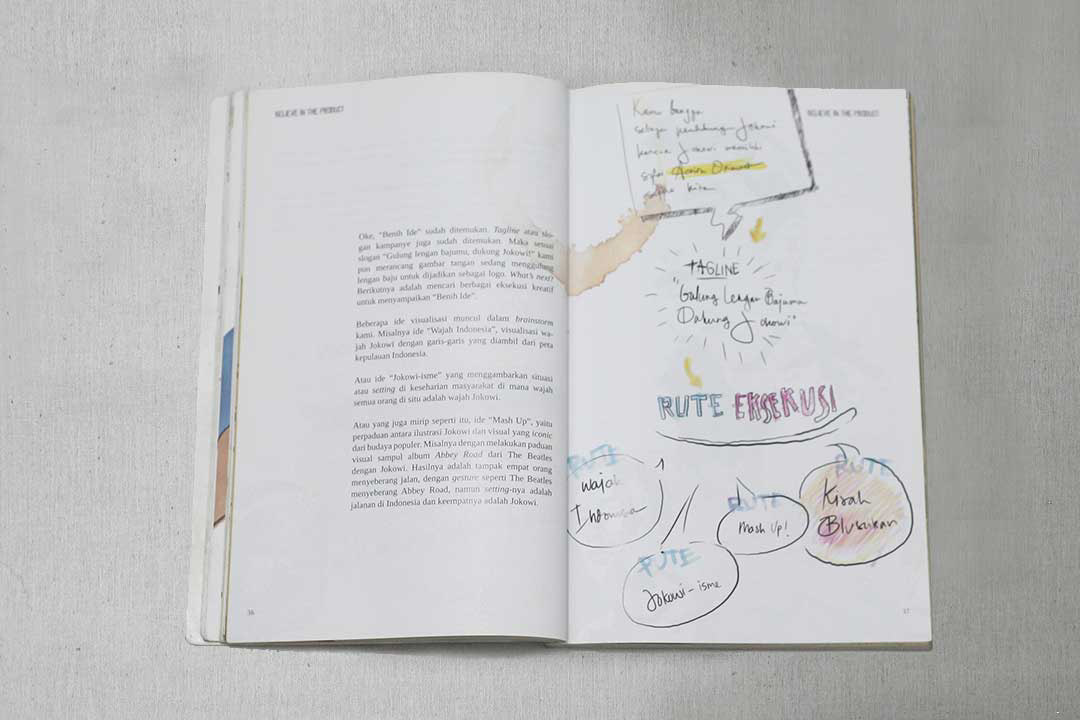 BELIEVE IN THE PRODUCT
Oke, "Benih Ide" sudah ditemukan. Tagline atau slo-
gan kampanye juga sudah ditemukan. Maka sesuai
slogan "Gulung lengan bajumu, dukung Jokowi!" kami
pun merancang gambar tangan sedang menggulung
lengan baju untuk dijadikan sebagai logo. What's next?
Berikutnya adalah mencari berbagai eksekusi kreatif
untuk menyampaikan "Benih Ide".
Beberapa ide visualisasi muncul dalam brainstorm
kami. Misalnya ide "Wajah Indonesia", visualisasi wa-
jah Jokowi dengan garis-garis yang diambil dari peta
kepulauan Indonesia.
Atau ide "Jokowi-isme" yang menggambarkan situasi
atau setting di keseharian masyarakat di mana wajah
semua orang di situ adalah wajah Jokowi.
Atau yang juga mirip seperti itu, ide "Mash Up", yaitu
perpaduan antara ilustrasi Jokowi dan visual yang iconic
dari budaya populer. Misalnya dengan melakukan paduan
visual sampul album Abbey Road dari The Beatles
dengan Jokowi. Hasilnya adalah tampak empat orang
menyeberang jalan, dengan gesture seperti The Beatles
menyeberang Abbey Road, namun setting-nya adalah
jalanan di Indonesia dan keempatnya adalah Jokowi.
36
BELIEVE IN THE PRODUCT
Kami bangga
sebagai pendukung Jokowi
karena Jokowi memiliki
sifat Action Oriented
kita
TAGLINE
"Gulung Lengan Bajumu
Dukung Jokowi"
RUTE EKSEKUSI
RUTE
Wajah
Indonesia
RUTE
Jokowi-isme
RUTE
Mash Up!
RUTE
Kisah
Blusukan
37